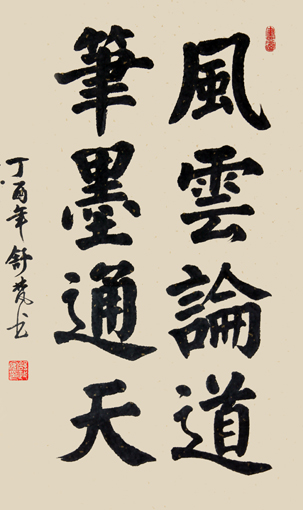 風雲論道
筆墨通天
丁酉年舒梵书